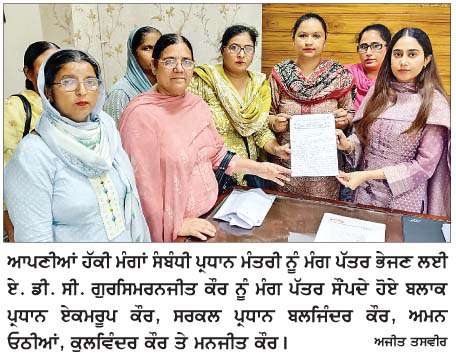 ਆਪਣੀਆਂ ਹੱਕੀ ਮੰਗਾਂ ਸੰਬੰਧੀ ਪ੍ਰਧਾਨ ਮੰਤਰੀ ਨੂੰ ਮੰਗ ਪੱਤਰ ਭੇਜਣ ਲਈ
ਏ. ਡੀ. ਸੀ. ਗੁਰਸਿਮਰਨਜੀਤ ਕੌਰ ਨੂੰ ਮੰਗ ਪੱਤਰ ਸੌਂਪਦੇ ਹੋਏ ਬਲਾਕ
ਪ੍ਰਧਾਨ ਏਕਮਰੂਪ ਕੌਰ, ਸਰਕਲ ਪ੍ਰਧਾਨ ਬਲਜਿੰਦਰ ਕੌਰ, ਅਮਨ
ਓਠੀਆਂ, ਕੁਲਵਿੰਦਰ ਕੌਰ ਤੇ ਮਨਜੀਤ ਕੌਰ। ਅਜੀਤ ਤਸਵੀਰ